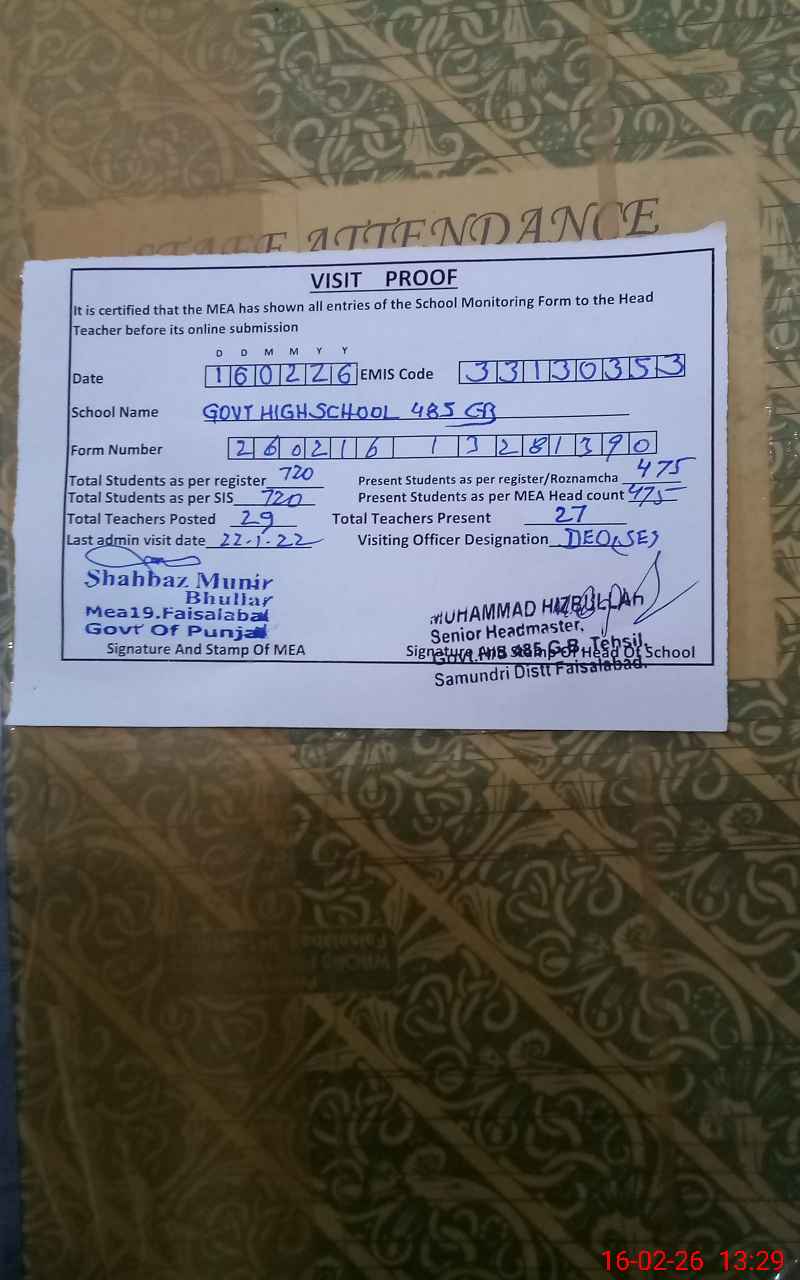 STAFF ATTENDANCE
VISIT PROOF
It is certified that the MEA has shown all entries of the School Monitoring Form to the Head
Teacher before its online submission
D D M M Y Y
Date 160226 EMIS Code 33130353
School Name GOVT HIGH SCHOOL 485 GB
Form Number 26021613281390
Total Students as per register 720 Present Students as per register/Roznamcha 475
Total Students as per SIS 720 Present Students as per MEA Head count 475
Total Teachers Posted 29 Total Teachers Present 27
Last admin visit date 22-1-22 Visiting Officer Designation DEO(SE)
Shahbaz Munir
Bhullar
Mea19.Faisalabad
Govt Of Punjab
Signature And Stamp Of MEA
MUHAMMAD HIZBULLAH
Senior Headmaster,
Govt. H/S 485 G.B. Tehsil,
Samundri Distt Faisalabad.
Signature And Stamp Of Head Of School
16-02-26 13:29